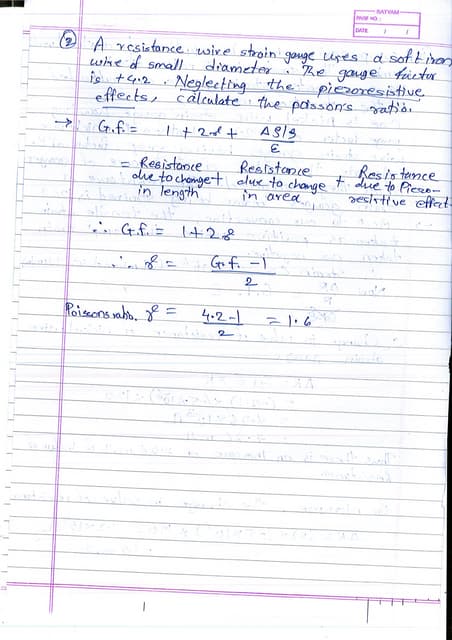 SATYAM
PAGE NO.:
DATE: / /
② A resistance wire strain gauge uses a soft iron
wire of small diameter. The gauge factor
is +4.2. Neglecting the piezoresistive
effects, calculate the poisson's ratio.
→ G.f. = 1 + 2ν + Δρ/ρ
ε
= Resistance Resistance Resistance
due to change + due to change + due to Piezo-
in length in area resistive effect.
∴ G.f. = 1+2ν
∴ ν = G.f. -1
2
Poissons ratio, ν = 4.2-1 = 1.6
2